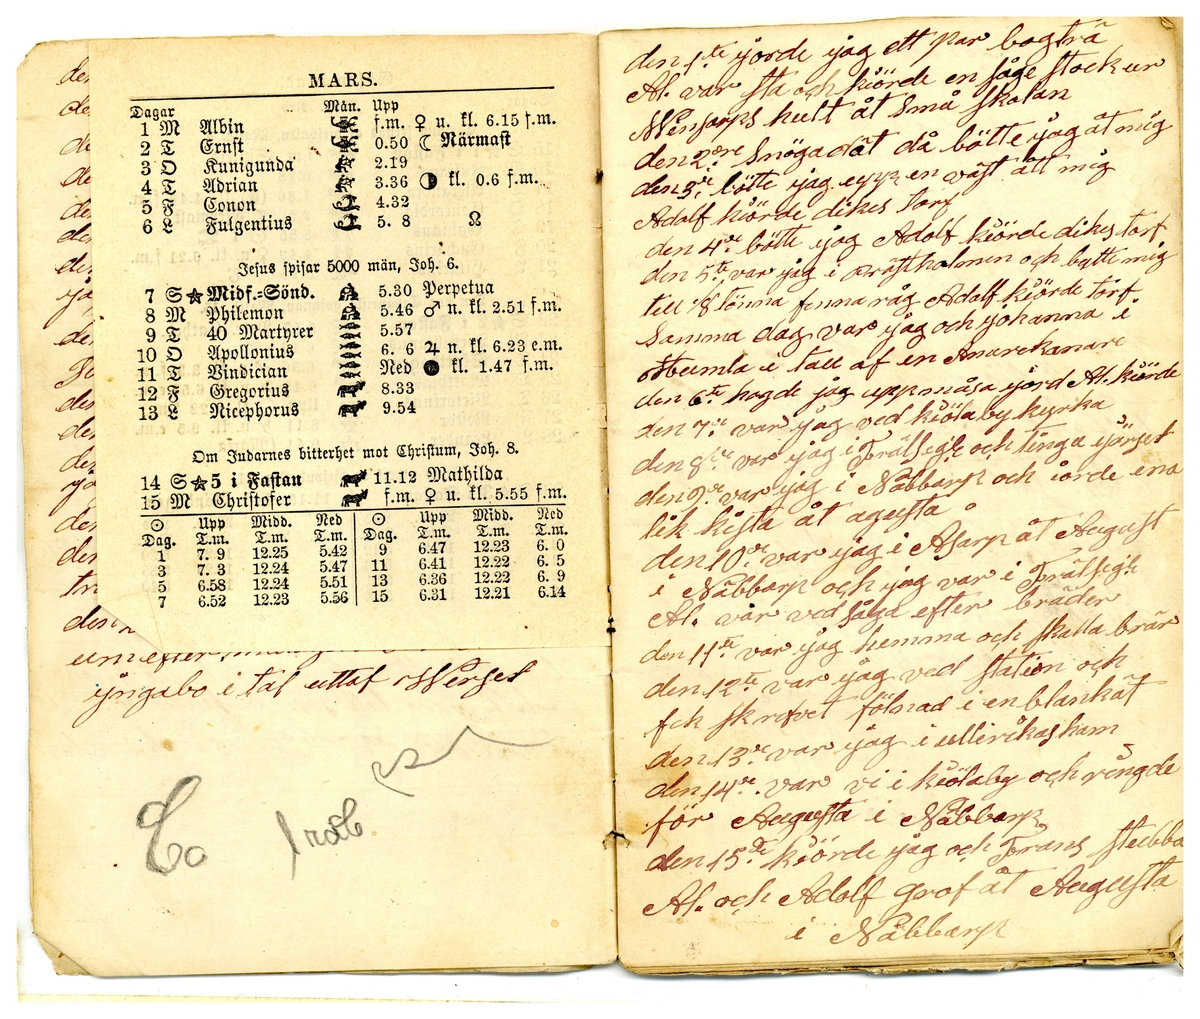 MARS.
Dagar Mån. Upp
1 M Albin f.m. ♀ u. kl. 6.15 f.m.
2 T Ernst 0.50 ☾ Närmast
3 O Kunigunda 2.19
4 T Adrian 3.36 ◑ kl. 0.6 f.m.
5 F Conon 4.32
6 L Fulgentius 5. 8 ☊
Jesus spisar 5000 män, Joh. 6.
7 S ★ Midf.=Sönd. 5.30 Perpetua
8 M Philemon 5.46 ♂ n. kl. 2.51 f.m.
9 T 40 Martyrer 5.57
10 O Apollonius 6. 6 ♃ n. kl. 6.23 e.m.
11 T Vindician Ned ● kl. 1.47 f.m.
12 F Gregorius 8.33
13 L Nicephorus 9.54
Om Judarnes bitterhet mot Christum, Joh. 8.
14 S ★ 5 i Fastan 11.12 Mathilda
15 M Christofer f.m. ♀ u. kl. 5.55 f.m.
☉ Upp Midd. Ned ☉ Upp Midd. Ned
Dag. T.m. T.m. T.m. Dag. T.m. T.m. T.m.
1 7. 9 12.25 5.42 9 6.47 12.23 6. 0
3 7. 3 12.24 5.47 11 6.41 12.22 6. 5
5 6.58 12.24 5.51 13 6.36 12.22 6. 9
7 6.52 12.23 5.56 15 6.31 12.21 6.14
yngabo i tal uttaf
den 1te jorde jag ett par bogträ
Al. var sta och kiörde en såge stock ur
hult åt Små skolan
den 2dre Snögadåt då bötte jag åt mig
den 3de bötte jag upp en väst ått mig
Adolf kiörde dikes torf
den 4de bötte jag Adolf kiörde dikes torf
den 5te var jag i och bytte mig
till 18 tönna råg Adolf kiörde torf
Samma dag var jag och johanna i
Humla i tall af en Amarekanare
den 6te hogde jag upp måsa jord Al. kiörde
den 7de var jag ved kiölaby kyrka
den 8de var jag i Trälsegh och tinga
den 9de var jag i Nåbbarp och iorde ena
lik kista åt agusta
den 10de var jag i Asarp åt August
i Nåbbarp och jag var i Trälsegh
Al. var ved såga efter bräder
den 11te var jag hemma och skalla brär
den 12te var jag ved station och
fek skrefvet fölnad i en blankät
den 13de var jag i ullerikasham
den 14de var vi i kiölaby och ringde
för Agusta i Nåbbarp
den 15de kiörde jag och Frans stubba
Al. och Adolf grof åt Augusta
i Nåbbarp